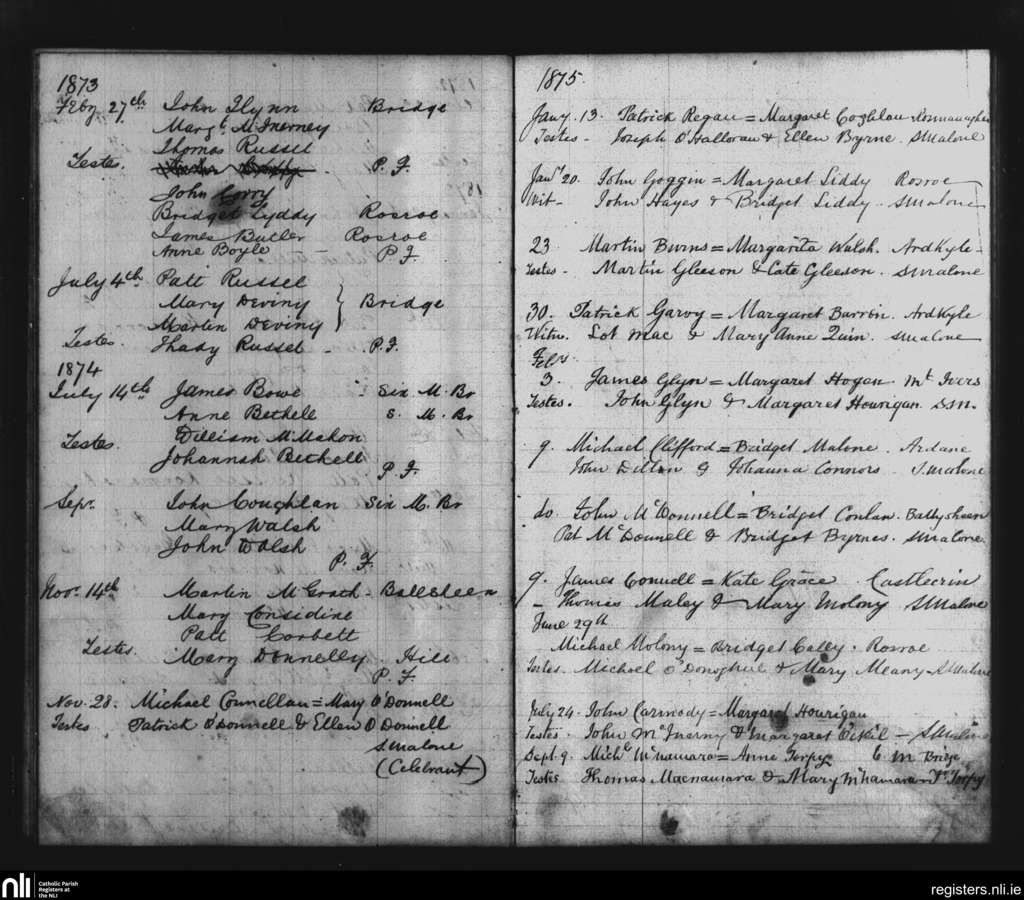 1873
Feby 27th John Flynn Bridge
Margt. McInerney
Thomas Russel
Testes. P. F.
John Corry
Bridget Lyddy Rosroe
James Butler Rosroe
Anne Boyle - P F.
July 4th Patt Russel
Mary Deviny } Bridge
Martin Deviny
Testes Thady Russel - P. F.
1874
July 14th James Bowe Six M. Br
Anne Bethell S. M. Br
William McMahon
Testes. Johannah Bethell
P. F.
Sepr. John Coughlan Six M. Br
Mary Walsh
John Walsh
P. F.
Nov. 14th Martin McGrath - Ballsheen
Mary Considine
Patt Corbett
Testes. Mary Donnelly. Hill
P. F.
Nov. 28. Michael Connellan = Mary O'Donnell
Testes Patrick O'Donnell & Ellen O'Donnell
S Malone
(Celebrant)
1875.
Jany. 13. Patrick Regan = Margaret Coghlan
Testes - Joseph O'Halloran & Ellen Byrne. SMalone
Jany 20. John Goggin = Margaret Liddy Rosroe
Wit - John Hayes & Bridget Liddy. SMalone
23 Martin Burns = Margarita Walsh. ArdKyle -
Testes - Martin Gleeson & Cate Gleeson. SMalone
30. Patrick Garvy = Margaret Barron. ArdKyle
Witn. Lot Mac & Mary Anne Quin. SMalone
Feby
3. James Glyn = Margaret Hogan Mt. Ivers
Testes. John Glyn & Margaret Hourigan. S.M.
9. Michael Clifford = Bridget Malone Ardane
John Dillon & Johanna Connors S.Malone
do. John McDonnell = Bridget Conlan. Ballysheen
Pat McDonnell & Bridget Byrnes. SMalone.
9. James Connell = Kate Grace. Castlecrin
- Thomas Maley & Mary Molony SMalone
June 29th
Michael Molony = Bridget Caley. Rosroe
Testes. Michael O'Donoghue & Mary Meany - SMalone
July 24. John Carmody = Margaret Hourigan
Testes. John McInerny & Margaret - SMalone
Sept. 9. Michl McNamara = Anne Torpy 6 M Bridge
Testes Thomas Macnamara & Mary McNamara - Torpy
nli Catholic Parish
Registers at
the NLI
registers.nli.ie